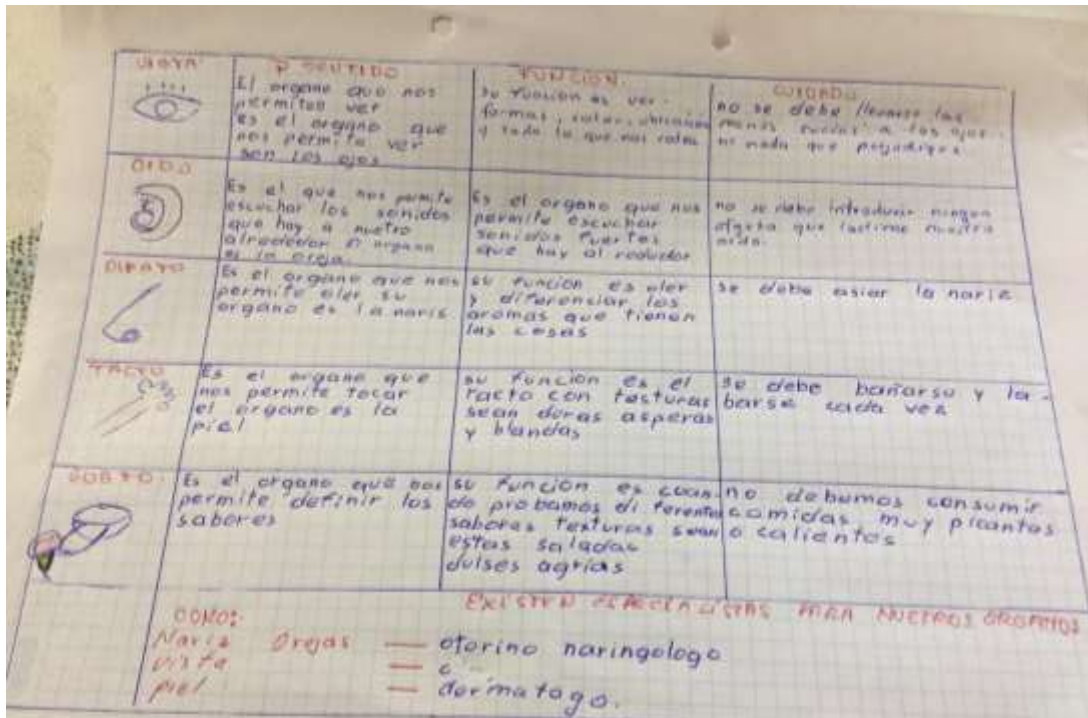 SENTIDO
FUNCION.
CUIDADO
El organo que nos
permiten ver
es el organo que
nos permite ver
son los ojos
su funcion es ver.
formas, color, ubicacion
y todo lo que nos rodea
no se debe llevarse las
manos sucias a los ojos.
ni nada que perjudique.
OIDO
Es el que nos permite
escuchar los sonidos
que hay a nuetro
alrededor el organo
es la oreja.
Es el organo que nos
permite escuchar
sonidos fuertes
que hay al rededor
no se debe introducir ningun
que lastime nuestro
oido.
Es el organo que nos
permite oler su
organo es la naris
su funcion es oler
y diferenciar los
aromas que tienen
las cosas
se debe asiar la nariz
TACTO
Es el organo que
nos permite tocar
el organo es la
piel
su funcion es el
tacto con texturas
sean duras asperas
y blandas
se debe bañarse y la-
barse cada vez
Es el organo que nos
permite definir los
sabores
su funcion es cuan
do probamos diferentes
sabores texturas sean
estas saladas
dulses agrias
no debemos consumir
comidas muy picantes
o calientes
EXISTEN ESPECIALISTAS PARA NUETROS ORGANOS
COMO:
Nariz Orejas — otorino naringologo
vista —
piel — dermatogo.